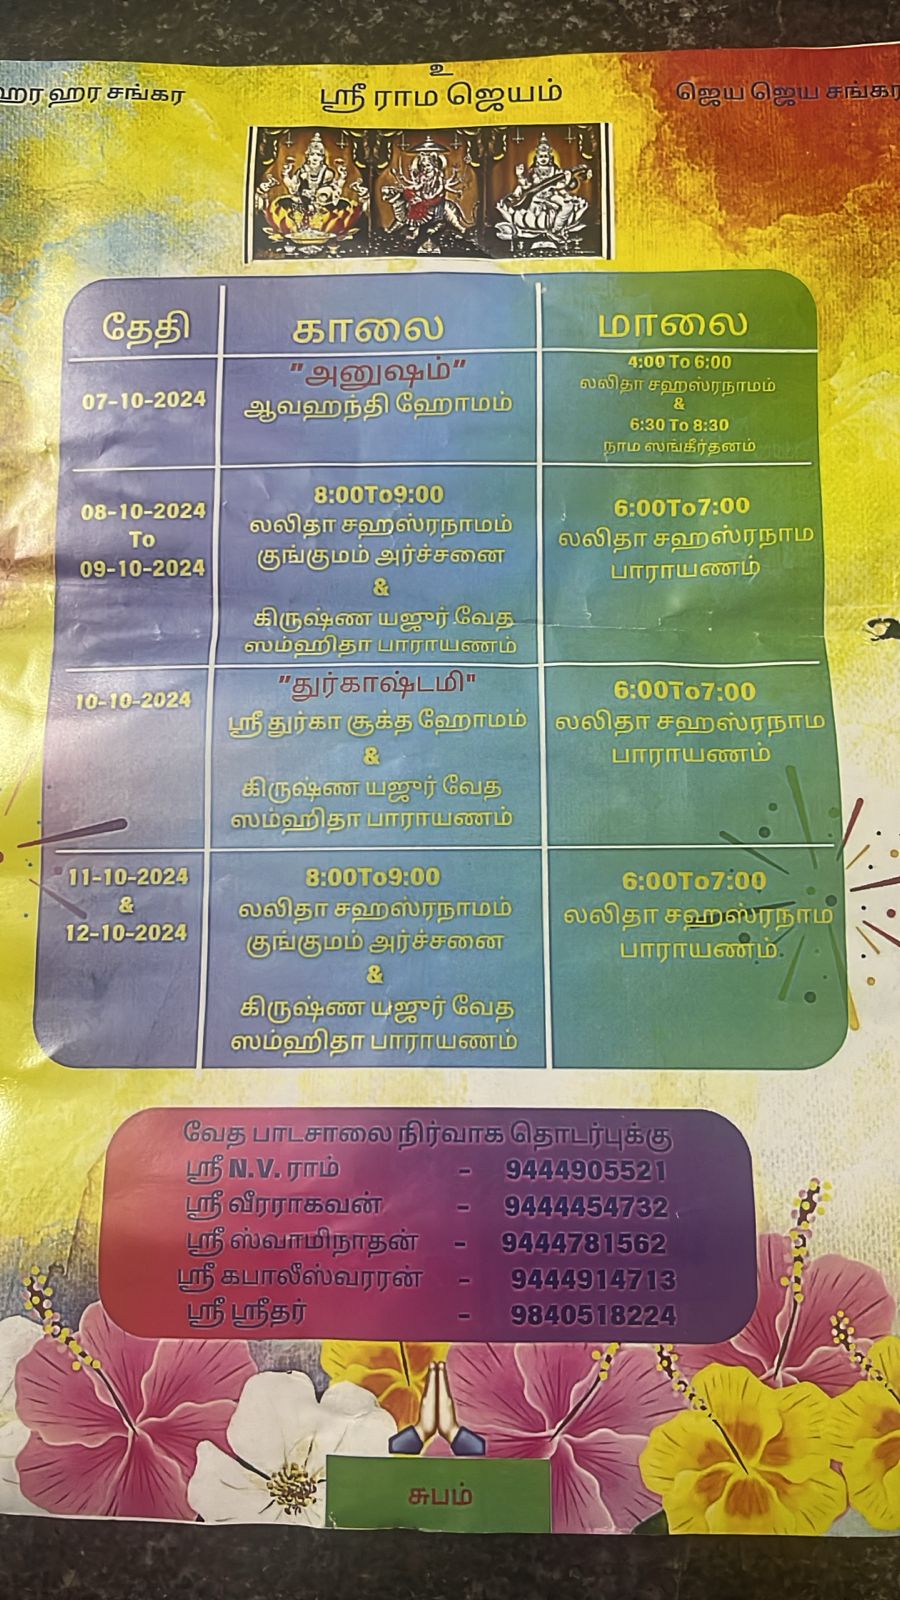 உ
ஹர ஹர சங்கர
ஸ்ரீ ராம ஜெயம்
ஜெய ஜெய சங்கர
தேதி
காலை
மாலை
07-10-2024
"அனுஷம்"
ஆவஹந்தி ஹோமம்
4:00 To 6:00
லலிதா சஹஸ்ரநாமம்
&
6:30 To 8:30
நாம ஸங்கீர்தனம்
08-10-2024
To
09-10-2024
8:00To9:00
லலிதா சஹஸ்ரநாமம்
குங்குமம் அர்ச்சனை
&
கிருஷ்ண யஜுர் வேத
ஸம்ஹிதா பாராயணம்
6:00To7:00
லலிதா சஹஸ்ரநாம
பாராயணம்
10-10-2024
"துர்காஷ்டமி"
ஸ்ரீ துர்கா சூக்த ஹோமம்
&
கிருஷ்ண யஜுர் வேத
ஸம்ஹிதா பாராயணம்
6:00To7:00
லலிதா சஹஸ்ரநாம
பாராயணம்
11-10-2024
&
12-10-2024
8:00To9:00
லலிதா சஹஸ்ரநாமம்
குங்குமம் அர்ச்சனை
&
கிருஷ்ண யஜுர் வேத
ஸம்ஹிதா பாராயணம்
6:00To7:00
லலிதா சஹஸ்ரநாம
பாராயணம்
வேத பாடசாலை நிர்வாக தொடர்புக்கு
ஸ்ரீ N.V. ராம் - 9444905521
ஸ்ரீ வீரராகவன் - 9444454732
ஸ்ரீ ஸ்வாமிநாதன் - 9444781562
ஸ்ரீ கபாலீஸ்வரரன் - 9444914713
ஸ்ரீ ஸ்ரீதர் - 9840518224
சுபம்